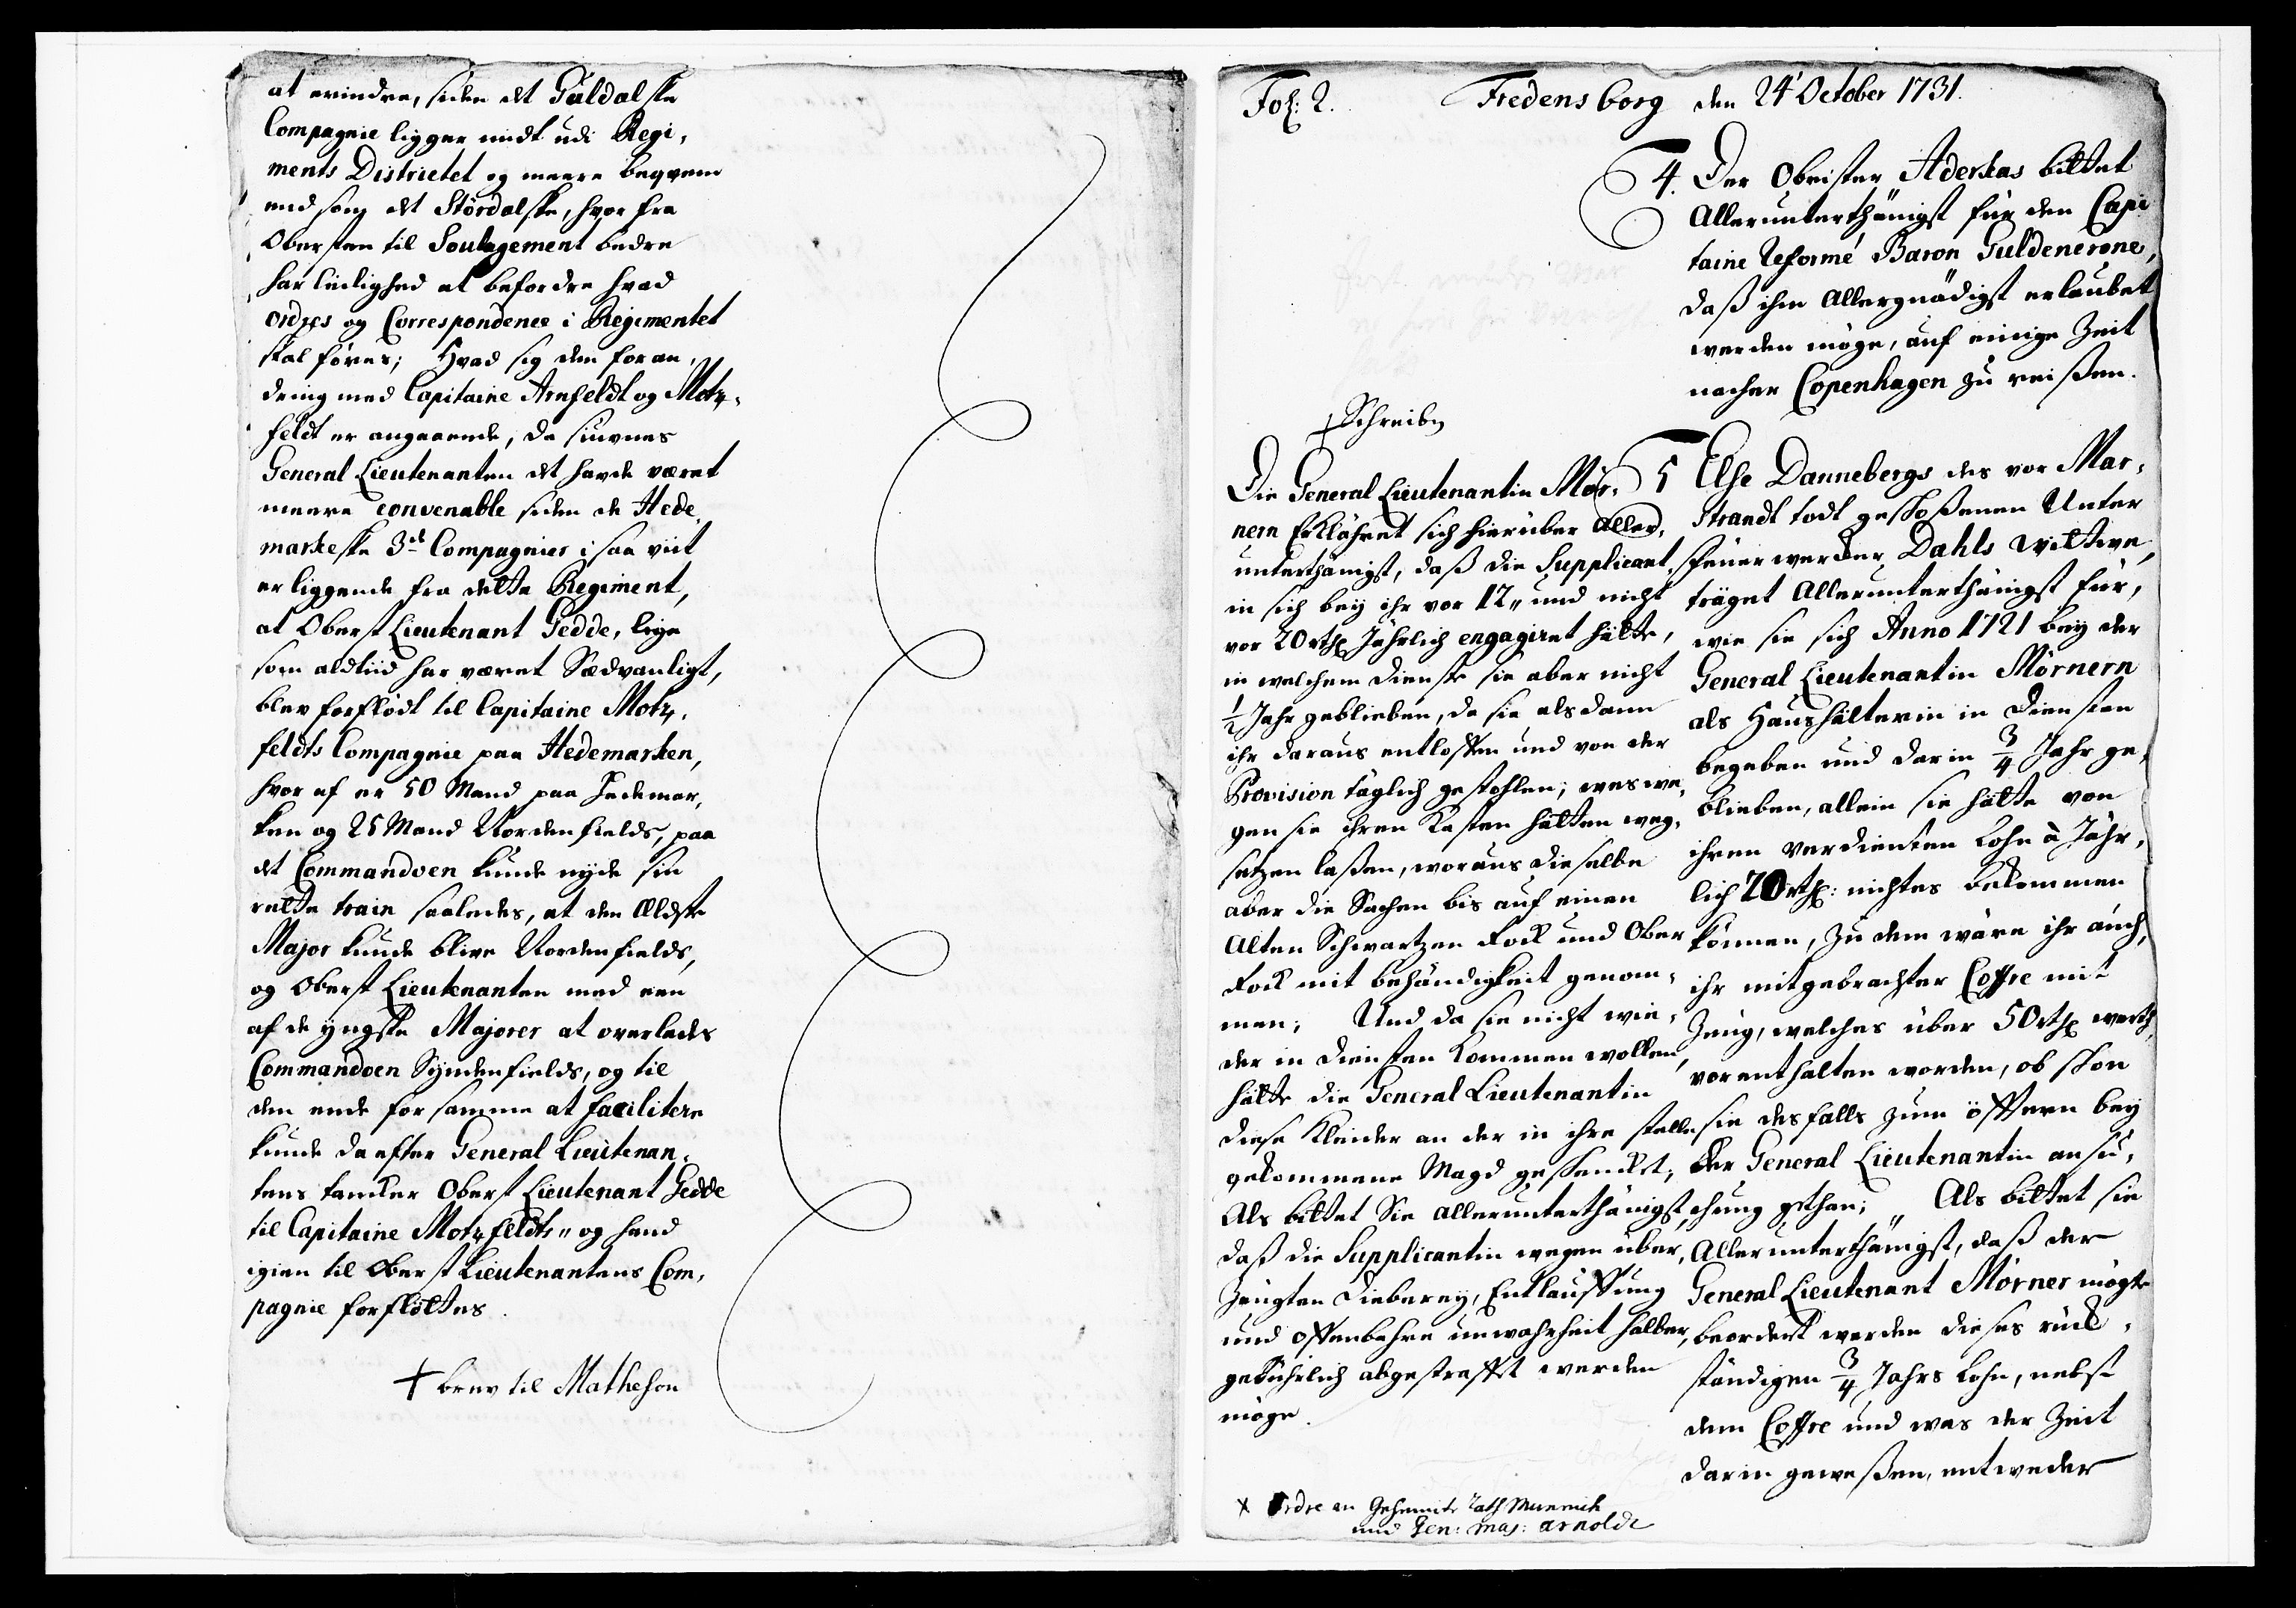 at erindre, siden det Guldalske
Compagnie ligger midt udi Regi-
ments Districtet og meere beqvem
end som det Stördalske, hvor fra
Obersten til Soulagement bedre
har leilighed at befordre hvad
ordres og Correspondence i Regimentet
skal föres; Hvad sig den foran-
dring med Capitaine Arnfeldt og Motz-
feldt er angaaende, da siuvnes
General Lieutenanten det havde været
meere convenable siden de Hede
markeske 3de Compagnier i saa viit
er liggende fra dette Regiment,
at Oberst Lieutenant Gedde, lige
som aldtiid har været Sædvanligt,
blev forflödt til Capitaine Motz-
feldts Compagnie paa Hedemarken,
hvor af er 50 Mand paa Hedemar-
ken og 25 Mand Nordenfields, paa
det Commandoen kunde nyde sin
rette train saaledes, at den Ældste
Major kunde blive Nordenfields,
og Oberst Lieutenanten med een
af de yngste Majorer at overlades
Commandoen Syndenfields, og til
den ende for samme at facilitere
kunde da efter General Lieutenan-
tens tancker Oberst Lieutenant Gedde
til Capitaine Motzfeldts" og hand
igien til Oberst Lieutenantens Com-
pagnie forflöttes.
+ brev til Matheson
Fol: 2. Fredensborg den 24' October 1731.
4. Der Obrister Aderkas bittet
Allerunterthänigst für den Capi
taine Reformé Baron Guldencrone,
daß ihm Allergnädigst erlaubet
werden möge, auf einige Zeit
nacher Copenhagen zu reißen.
+ Schreiben
Die General Lieutenantin Mör-
nern Erklähret sich hierüber Aller-
unterthänigst, daß die Supplicant-
in sich bey ihr vor 12" und nicht
vor 20 rthl Jährlich engagiret hätte,
in welchem dienste sie aber nicht
1/2 Jahr geblieben, da sie als dann
ihr daraus entloffen und von der
Provision täglich gestohlen; wes we-
gen sie ihren Kasten hätten weg-
setzen laßen, woraus dieselbe
aber die Sachen bis auf einen
Alten Schwartzen Rock und Ober
Rock mit behändigkeit genom-
men; Und da sie nicht wie-
der in diensten kommen wollen,
hätte die General Lieutenantin
diese Kleider an der in ihre stelle
gekommene Magd geschenckt;
Als bittet Sie allerunterthänigst
daß die Supplicantin wegen über-
zeugten Dieberey, Entlauffung
und offenbahre unwahrheit halber,
gebührlich abgestrafft werden
möge.
5 Else Dannebergs des vor Mar-
strandt todt geschoßenen Unter
feuerwercker Dahls Wittwe,
träget Allerunterthänigst für,
wie sie sich Anno 1721 bey der
General Lieutenantin Mörnern
als Haushälterin in Diensten
begeben und darin 3/4 Jahr ge-
blieben, allein sie hätte von
ihren verdienten Lohn à Jähr-
lich 20 rthl: nichtes bekommen
können, Zu dem wäre ihr auch,
ihr mitgebrachter Coffre mit
Zeug, welches über 50 rthl werth,
vorenthalten worden, ob schon
sie desfalls zum öfftern bey
der General Lieutenantin ansu-
chung gethan; " Als bittet sie
Allerunterthänigst, daß der
General Lieutenant Mörner mögte
beordert werden dieses rück-
ständigen 3/4 Jahrs Lohn, nebst
dem Coffre und was der Zeit
darin geweßen, entweder
x Ordre an Geheimte Rath Munnich
und Gen: maj: Arnoldt